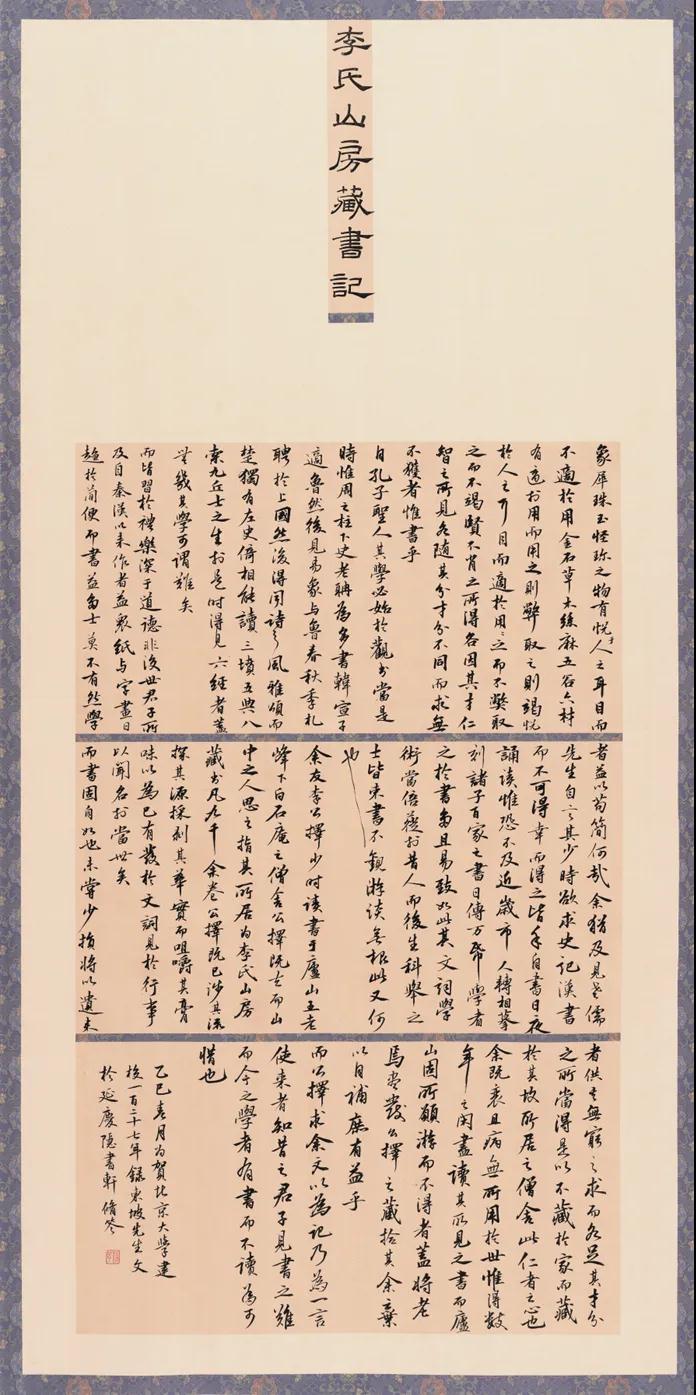 李氏山房藏書記
象犀珠玉怪珍之物有悦於人之耳目而
不適於用金石草木絲麻五谷六材
有適於用而用之則弊取之則竭悦
於人之耳目而適於用用之而不弊取
之而不竭賢不肖之所得各因其才仁
智之所見各隨其分才分不同而求無
不獲者惟書乎
自孔子聖人其學必始於觀書當是
時惟周之柱下史老聃為多書韓宣子
適魯然後見易象与魯春秋季札
聘於上國然後得聞詩之風雅頌而
楚獨有左史倚相能讀三墳五典八
索九丘士之生於是時得見六經者蓋
無幾其學可謂難矣
而皆習於禮樂深于道德非後世君子所
及自秦漢以來作者益衆紙与字畫日
趨於簡便而書益多士莫不有然學
者益以苟簡何哉余猶及見老儒
先生自言其少時欲求史記漢書
而不可得幸而得之皆手自書日夜
誦读惟恐不及近歲市人轉相摹
刻諸子百家之書日傳万帋學者
之於書多且易致如此其文詞學
術當倍蓰於昔人而後生科舉之
士皆束書不觀游谈無根此又何
也
余友李公擇少时读書于廬山五老
峰下白石庵之僧舍公擇既去而山
中之人思之指其所居为李氏山房
藏书凡九千余卷公擇既已涉其流
探其源採剥其華實而咀嚼其膏
味以為己有發於文詞見於行事
以聞名於當世矣
而書固自如也未嘗少損將以遺来
者供其無窮之求而各足其才分
之所當得是以不藏於家而藏
於其故所居之僧舍此仁者之心也
余既衰且病無所用於世惟得數
年之闲盡讀其所見之書而廬
山固所願游而不得者蓋将老
焉盡發公擇之藏拾其余棄
以自補庶有益乎
而公擇求余文以為記乃為一言
使來者知昔之君子見書之難
而今之學者有書而不讀為可
惜也
乙巳春月为贺北京大學建
校一百二十七年錄東坡先生文
於延慶隱書軒